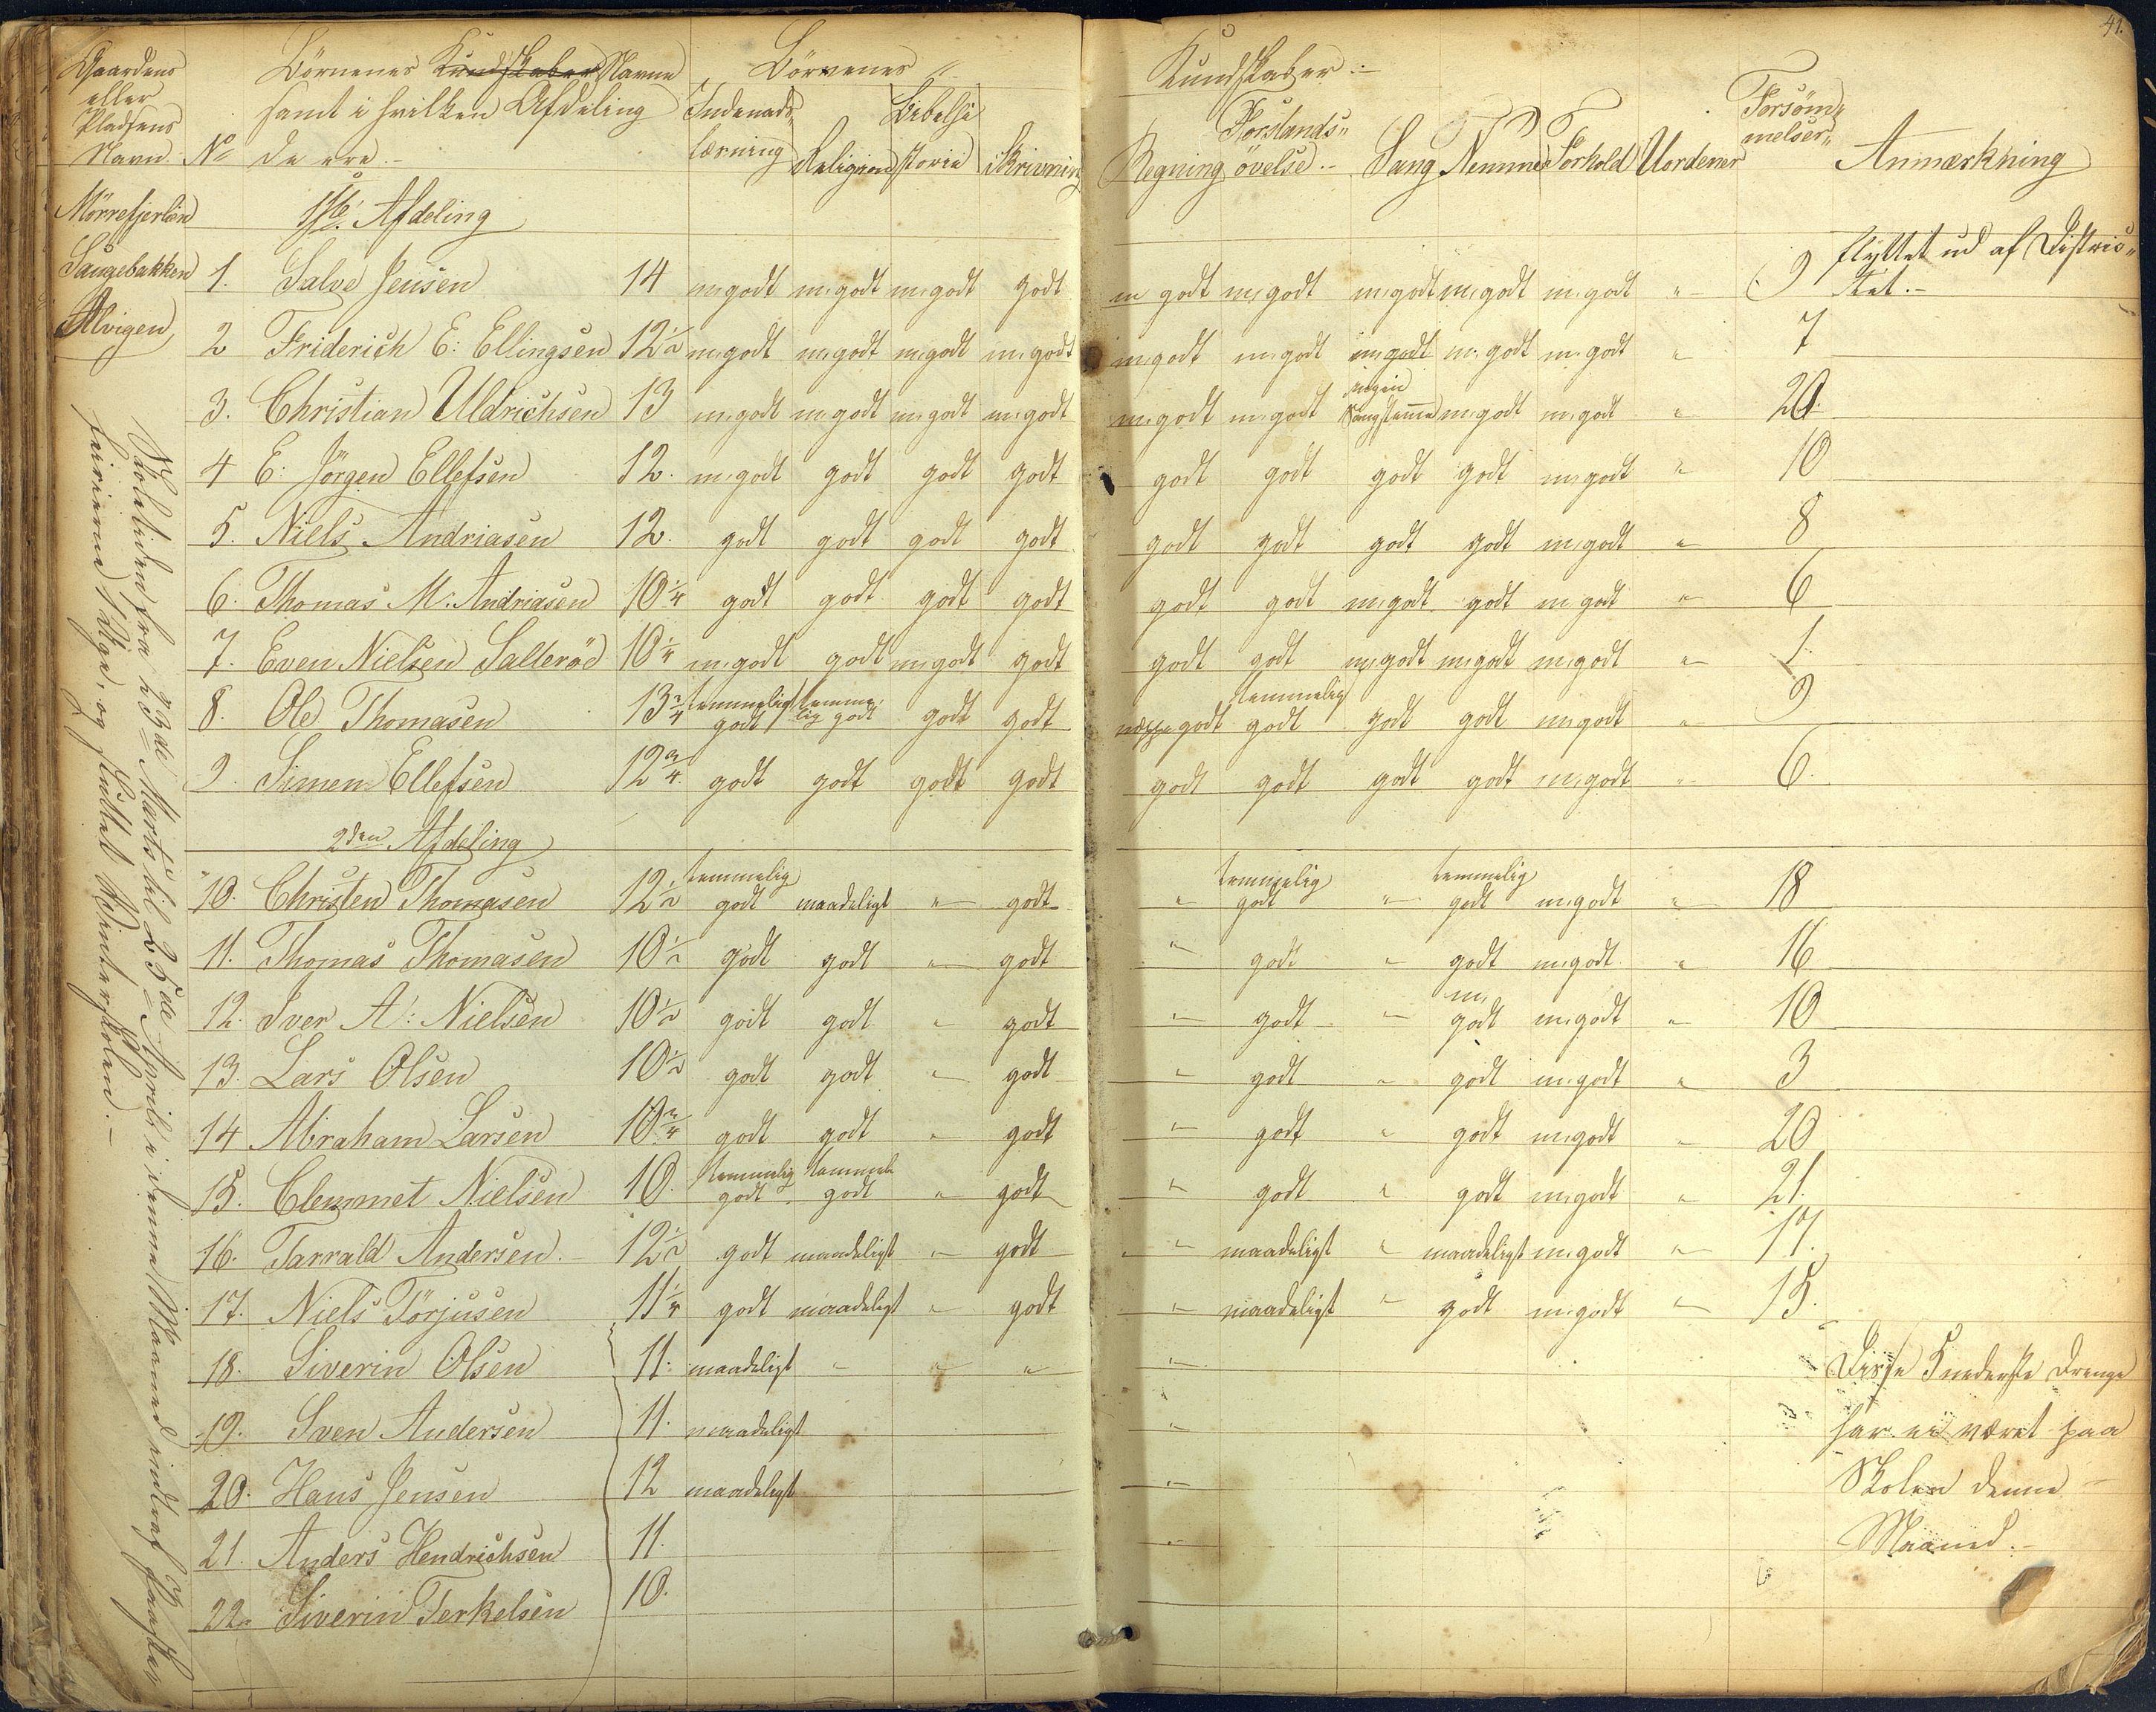 41.
Gaardens eller Pladsens Navn. No Börnenes Kundskaber Navne samt i hvilken Afdeling de ere.- Börnenes Kundskaber:-
Indenads-lærning Religion Bibelhistorie Skrivning Regning Forstands-övelse.- Sang Nemme Forhold Uordener Forsöm-melser Anmærkning
Mörrefjerlen
Saugebakken
Alvigen
1ste Afdeling
1. Salve Jensen 14 m.godt m.godt m.godt godt m godt m.godt m.godt m.godt m.godt " 9 flyttet ud af Distric-tet.-
2 Friderich E: Ellingsen 12½ m.godt m.godt m.godt m.godt m.godt m.godt m.godt m.godt m.godt " 7
3. Christian Uldrichsen 13 m.godt m.godt m.godt m.godt m.godt m.godt ingen Sangstemme m.godt m.godt " 20.
4 E: Jörgen Ellefsen 12. m.godt godt godt godt godt godt godt godt m.godt " 10
5. Niels Andriasen 12. godt godt godt godt godt godt godt godt m.godt " 8
6. Thomas M. Andriasen 10¼ godt godt godt godt godt godt m.godt godt m.godt " 6
7. Even Nielsen Salleröd 10¼ m.godt godt m.godt godt godt godt m.godt m.godt m.godt " 1.
8. Ole Thomasen 13¾ temmeligt godt temme-lig godt godt godt godt temmelig godt godt godt m.godt " 9
9. Simen Ellefsen 12¾ godt godt godt godt godt godt godt godt m.godt " 6.
2den Afdeling
10. Christen Thomasen 12½ temmelig godt maadeligt " godt " temmelig godt " temmelig godt m.godt " 18
11. Thomas Thomasen 10½ godt godt " godt " godt " godt m.godt " 16
12. Iver A: Nielsen 10½ godt godt " godt " godt " m. godt m.godt " 10
13. Lars Olsen 10½ godt godt " godt " godt " godt m.godt " 3
14 Abraham Larsen 10¾ godt godt " godt " godt " godt m.godt " 20
15. Clemmet Nielsen 10. temmelig godt temmeli godt " godt " godt " godt m.godt " 21.
16. Tarrald Andersen.- 12½ godt maadeligt " godt " maadeligt " maadeligt m.godt " 17.
17. Niels Törjusen 11¼ godt maadeligt " godt " maadeligt " godt m.godt " 15.
18. Siverin Olsen 11. maadeligt " " " " Disse 5 nederste Drenge
19. Sven Andersen 11. maadeligt " har ei været paa
20. Hans Jensen 12 maadeligt " Skolen denne
21. Anders Hendrichsen 11. " Maaned.-
22. Siverin Terkelsen 10.
Skoletiden fra 23de Marts til 25de April i denne Maaned indtraf Paaske-
ferierne 1 Uge, og sluttet Vinterskolen.-